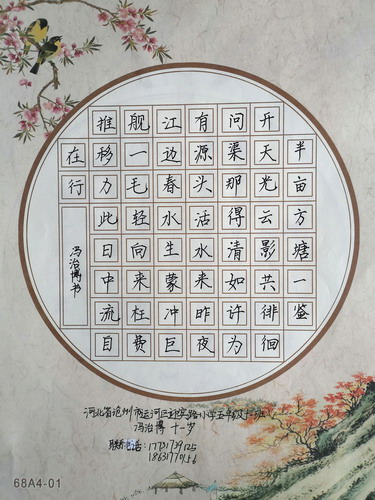 半亩方塘一鉴
开天光云影共徘徊
问渠那得清如许为
有源头活水来昨夜
江边春水生蒙冲巨
舰一毛轻向来枉费
推移力此日中流自
在行
冯治博书
河北省沧州市运河区迎宾路小学五年级
冯治博 十一岁
联系电话:17731739125
18631770156
68A4-01